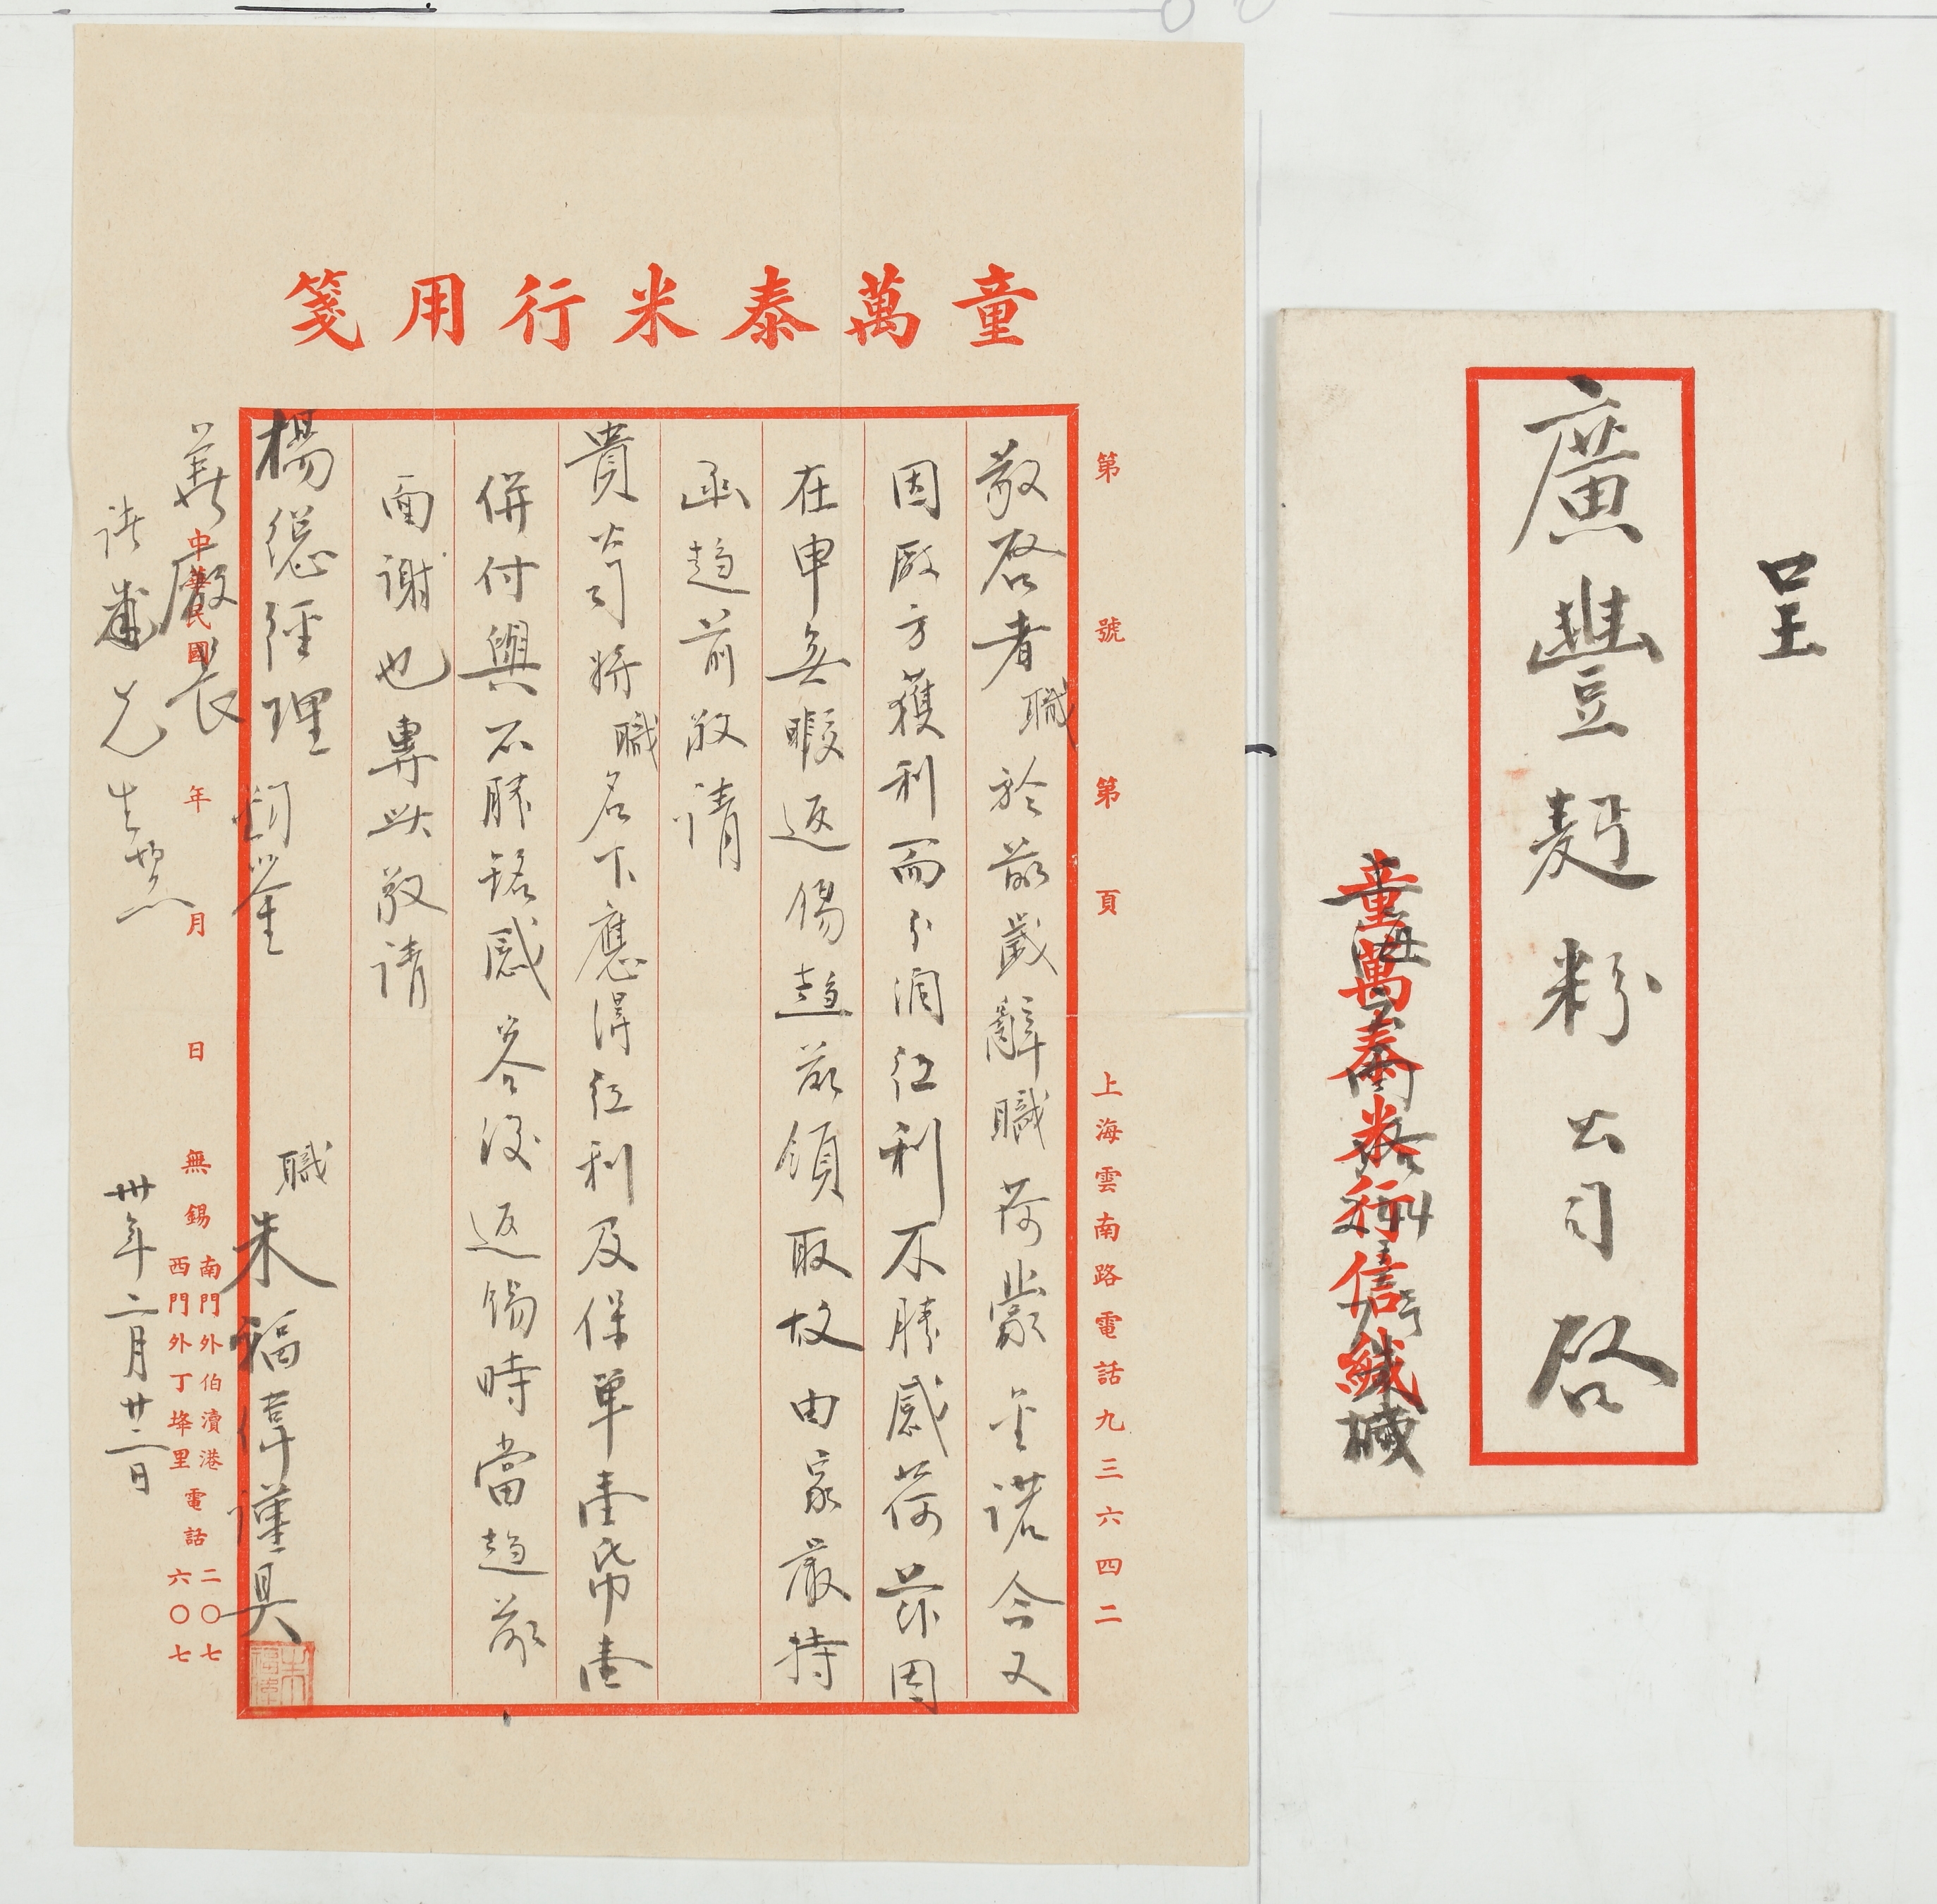 童萬泰米行用箋
第 號 第 頁 上海雲南路電話九三六四二
敬啓者職於前歲辭職荷蒙金諾合又
因廠方獲利而分潤紅利不勝感荷茲因
在申無暇返錫趨前領取故由家嚴持
函趨前敬請
貴公司將職名下應得紅利及保單壹帋壹
併付與不勝銘感容後返錫時當趨前
面謝也專此敬請
楊總經理鈞鑒 職朱福偉謹具
蔡廠長
中華民國 年 月 日 無錫 南門外伯瀆港 電話 二〇七
西門外丁埄里 六〇七
甫兄生煞
卅年二月廿二日
呈
廣豐麵粉公司啓
童萬泰米行信緘
上海雲南路244号